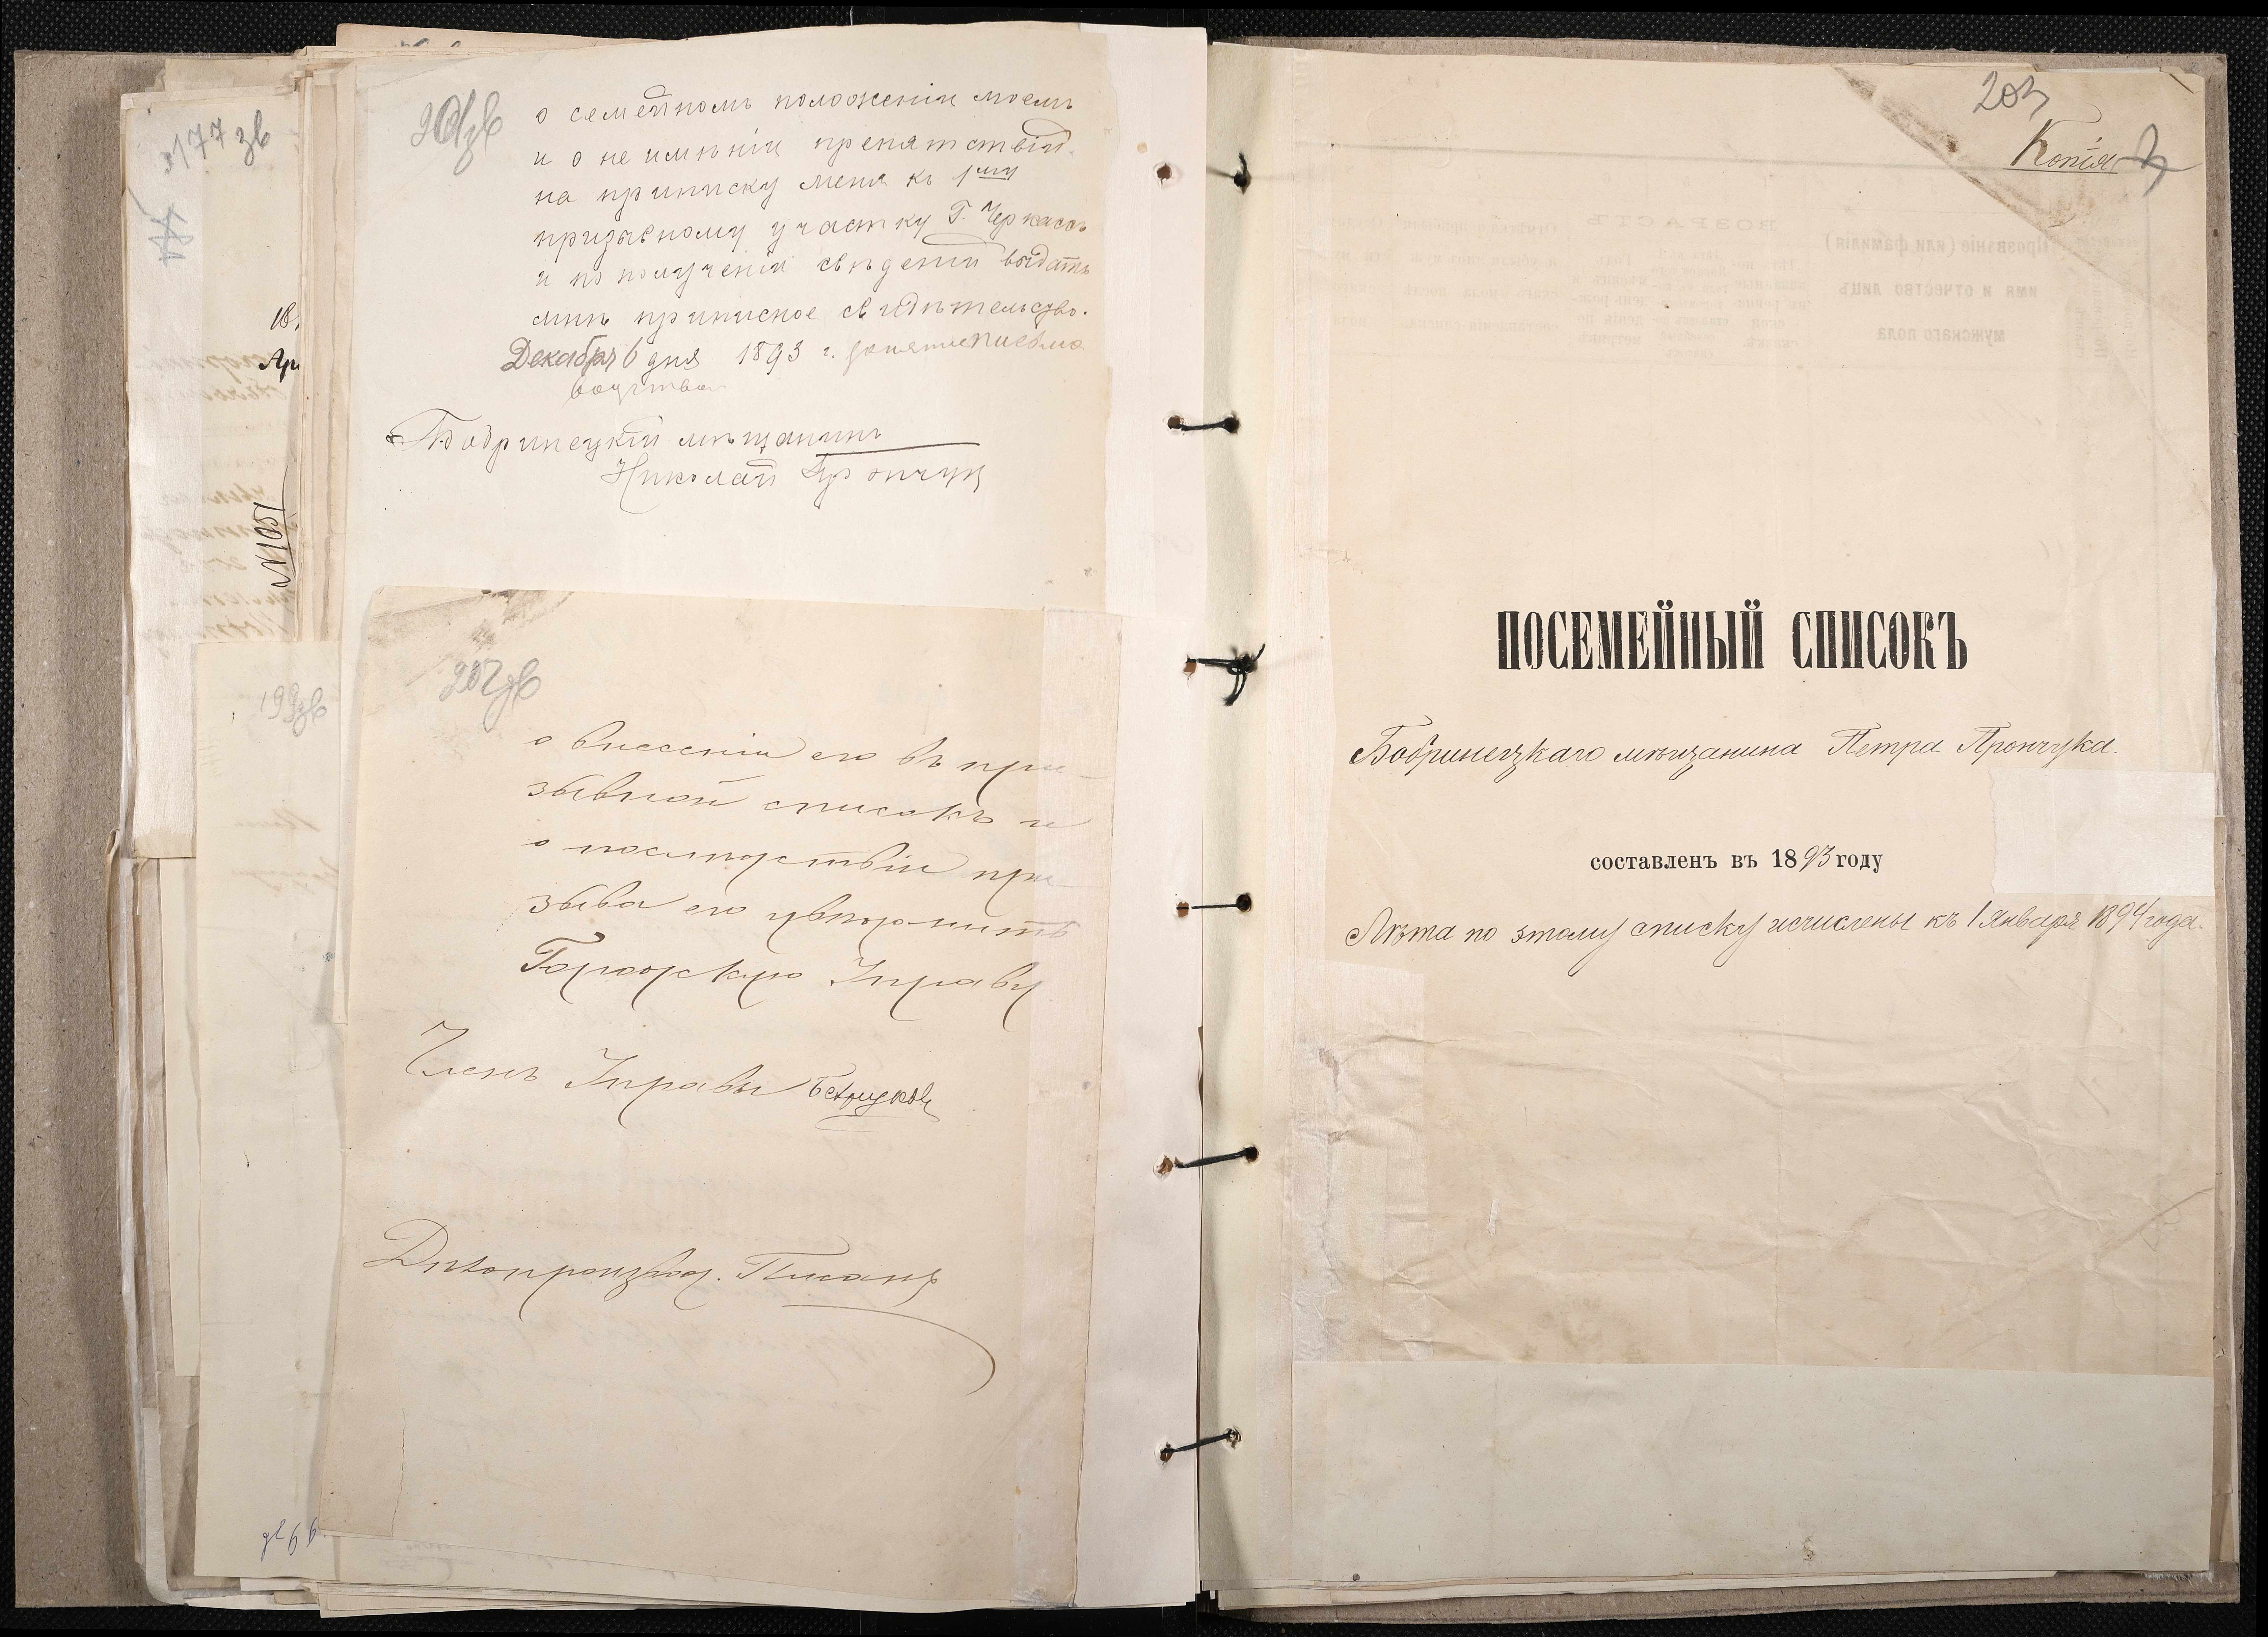 177 зв
18
№ 1051
199 зв
201 зв
о семейномъ положеніи моемъ
и о не имѣніи препятствій
на приписку меня къ 1му
призывному участку Г. Черкассъ
и по полученіи свѣдений выдать
мнѣ приписное свидѣтельство.
Декабря 6 дня 1893 г.
Бобринецкій мѣщанинъ
Николай Прончук
202 зв
о внесеніи его въ при-
зывной списокъ и
о послѣдствіи при-
зыва его увѣдомить
Городскую Управу
Членъ Управы
Дѣлопроизвод. Писанъ
203
Копія
ПОСЕМЕЙНЫЙ СПИСОКЪ
Бобринецкаго мѣщанина Петра Прончука.
составленъ въ 1893 году
Лѣта по этому списку исчислены къ 1 Января 1894 года.